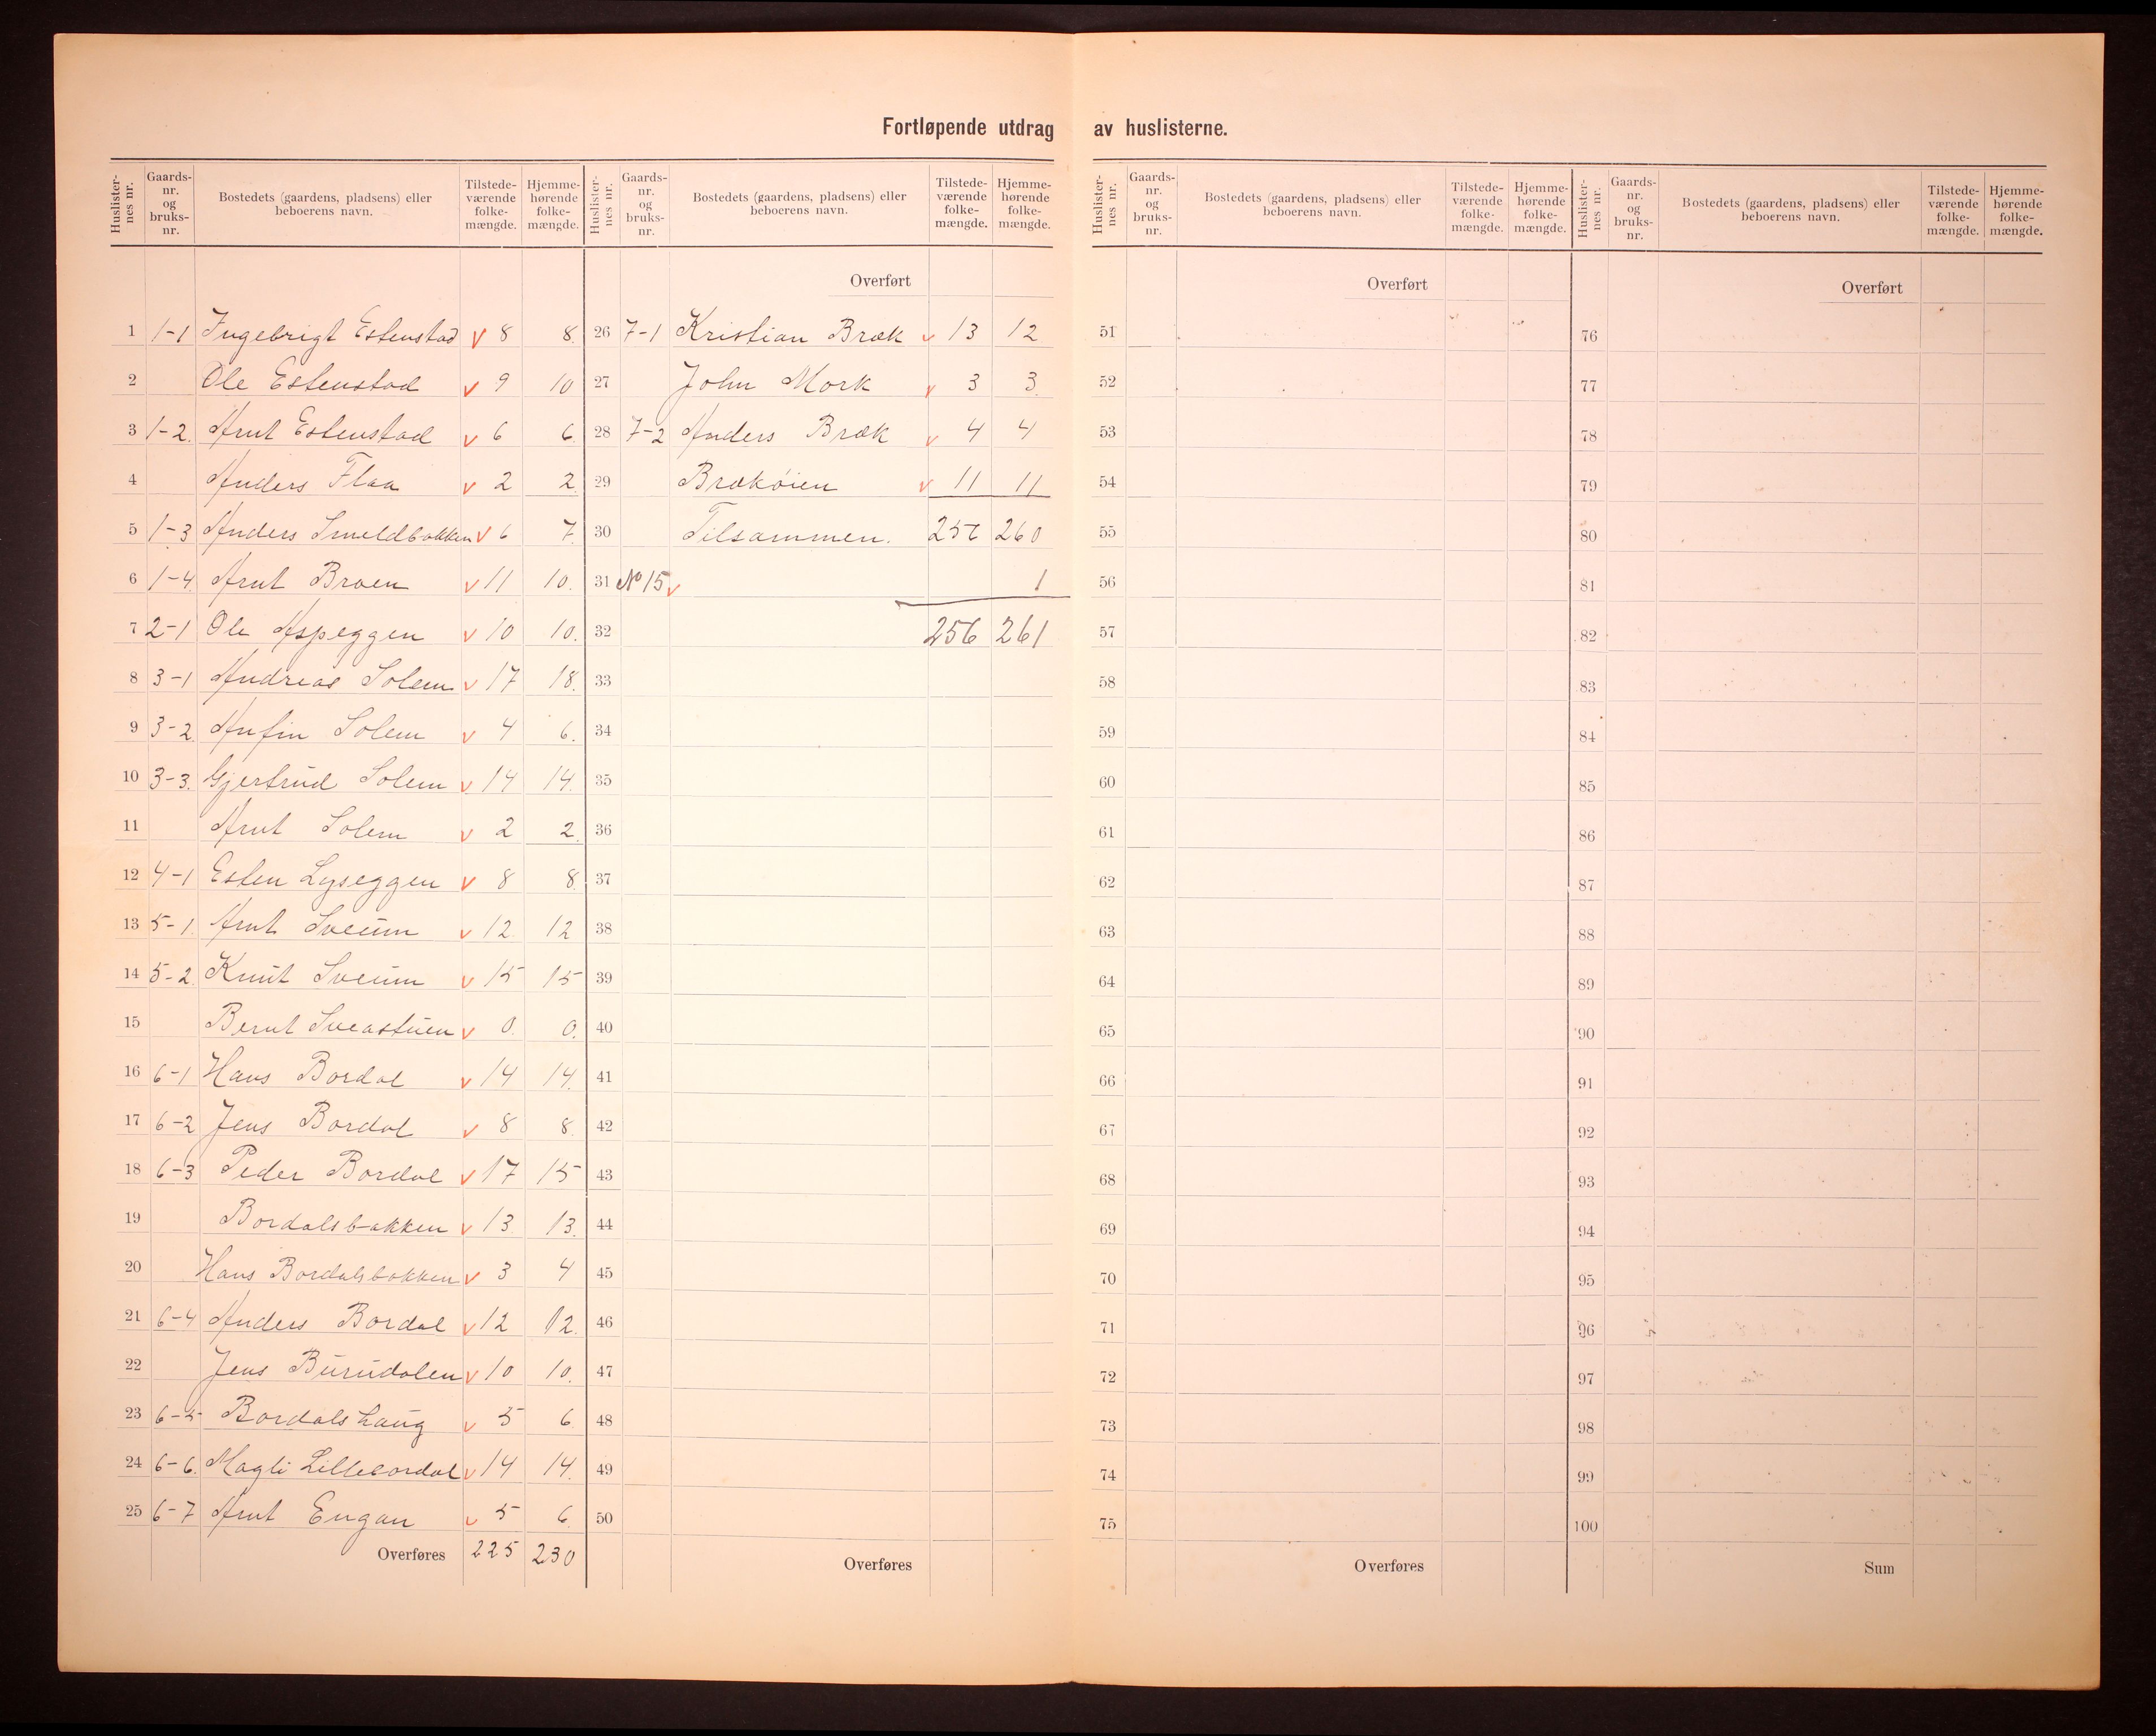 Fortløpende utdrag av huslisterne.
Huslisternes nr. Gaards-nr. og bruks-nr. Bostedets (gaardens, pladsens) eller beboerens navn. Tilstede-værende folke-mængde. Hjemme-hørende folke-mængde.
1 1-1 Ingebrigt Estenstad v 8 8.
2 Ole Estenstad v 9 10
3 1-2. Arnt Estenstad v 6 6
4 Anders Flaa v 2 2
5 1-3 Anders Smeldbakken v 6 7.
6 1-4. Arnt Broen v 11 10.
7 2-1 Ole Aspeggen v 10 10.
8 3-1 Andreas Solem v 17 18.
9 3-2. Anfin Solem v 4 6.
10 3-3. Gjertrud Solem v 14 14.
11 Arnt Solem v 2 2
12 4-1 Esten Lyseggen v 8 8
13 5-1. Arnt Sveum v 12 12
14 5-2. Knut Sveum v 15 15
15 Bernt Sveastuen v 0. 0.
16 6-1 Hans Bordal v 14 14.
17 6-2 Jens Bordal v 8 8
18 6-3 Peder Bordal v 17 15
19 Bordalsbakken v 13 13.
20 Hans Bordalsbakken v 3 4
21 6-4 Anders Bordal v 12 12.
22 Jens Burudalen v 10 10.
23 6-5 Bordalshaug v 5 6
24 6-6. Magli Lillebordal v 14 14.
25 6-7 Arnt Engan v 5 6
Overføres 225 230
Huslisternes nr. Gaards-nr. og bruks-nr. Bostedets (gaardens, pladsens) eller beboerens navn. Tilstede-værende folke-mængde. Hjemme-hørende folke-mængde.
Overført
26 7-1 Kristian Bræk v 13 12
27 John Mork v 3 3.
28 7-2 Anders Bræk v 4 4
29 Brækøien v 11 11
30 Tilsammen. 256 260
31 No 15 v 1
32 256 261
33
34
35
36
37
38
39
40
41
42
43
44
45
46
47
48
49
50
Overføres
Huslisternes nr. Gaards-nr. og bruks-nr. Bostedets (gaardens, pladsens) eller beboerens navn. Tilstede-værende folke-mængde. Hjemme-hørende folke-mængde.
Overført
51
52
53
54
55
56
57
58
59
60
61
62
63
64
65
66
67
68
69
70
71
72
73
74
75
Overføres
Huslisternes nr. Gaards-nr. og bruks-nr. Bostedets (gaardens, pladsens) eller beboerens navn. Tilstede-værende folke-mængde. Hjemme-hørende folke-mængde.
Overført
76
77
78
79
80
81
82
83
84
85
86
87
88
89
90
91
92
93
94
95
96
97
98
99
100
Sum